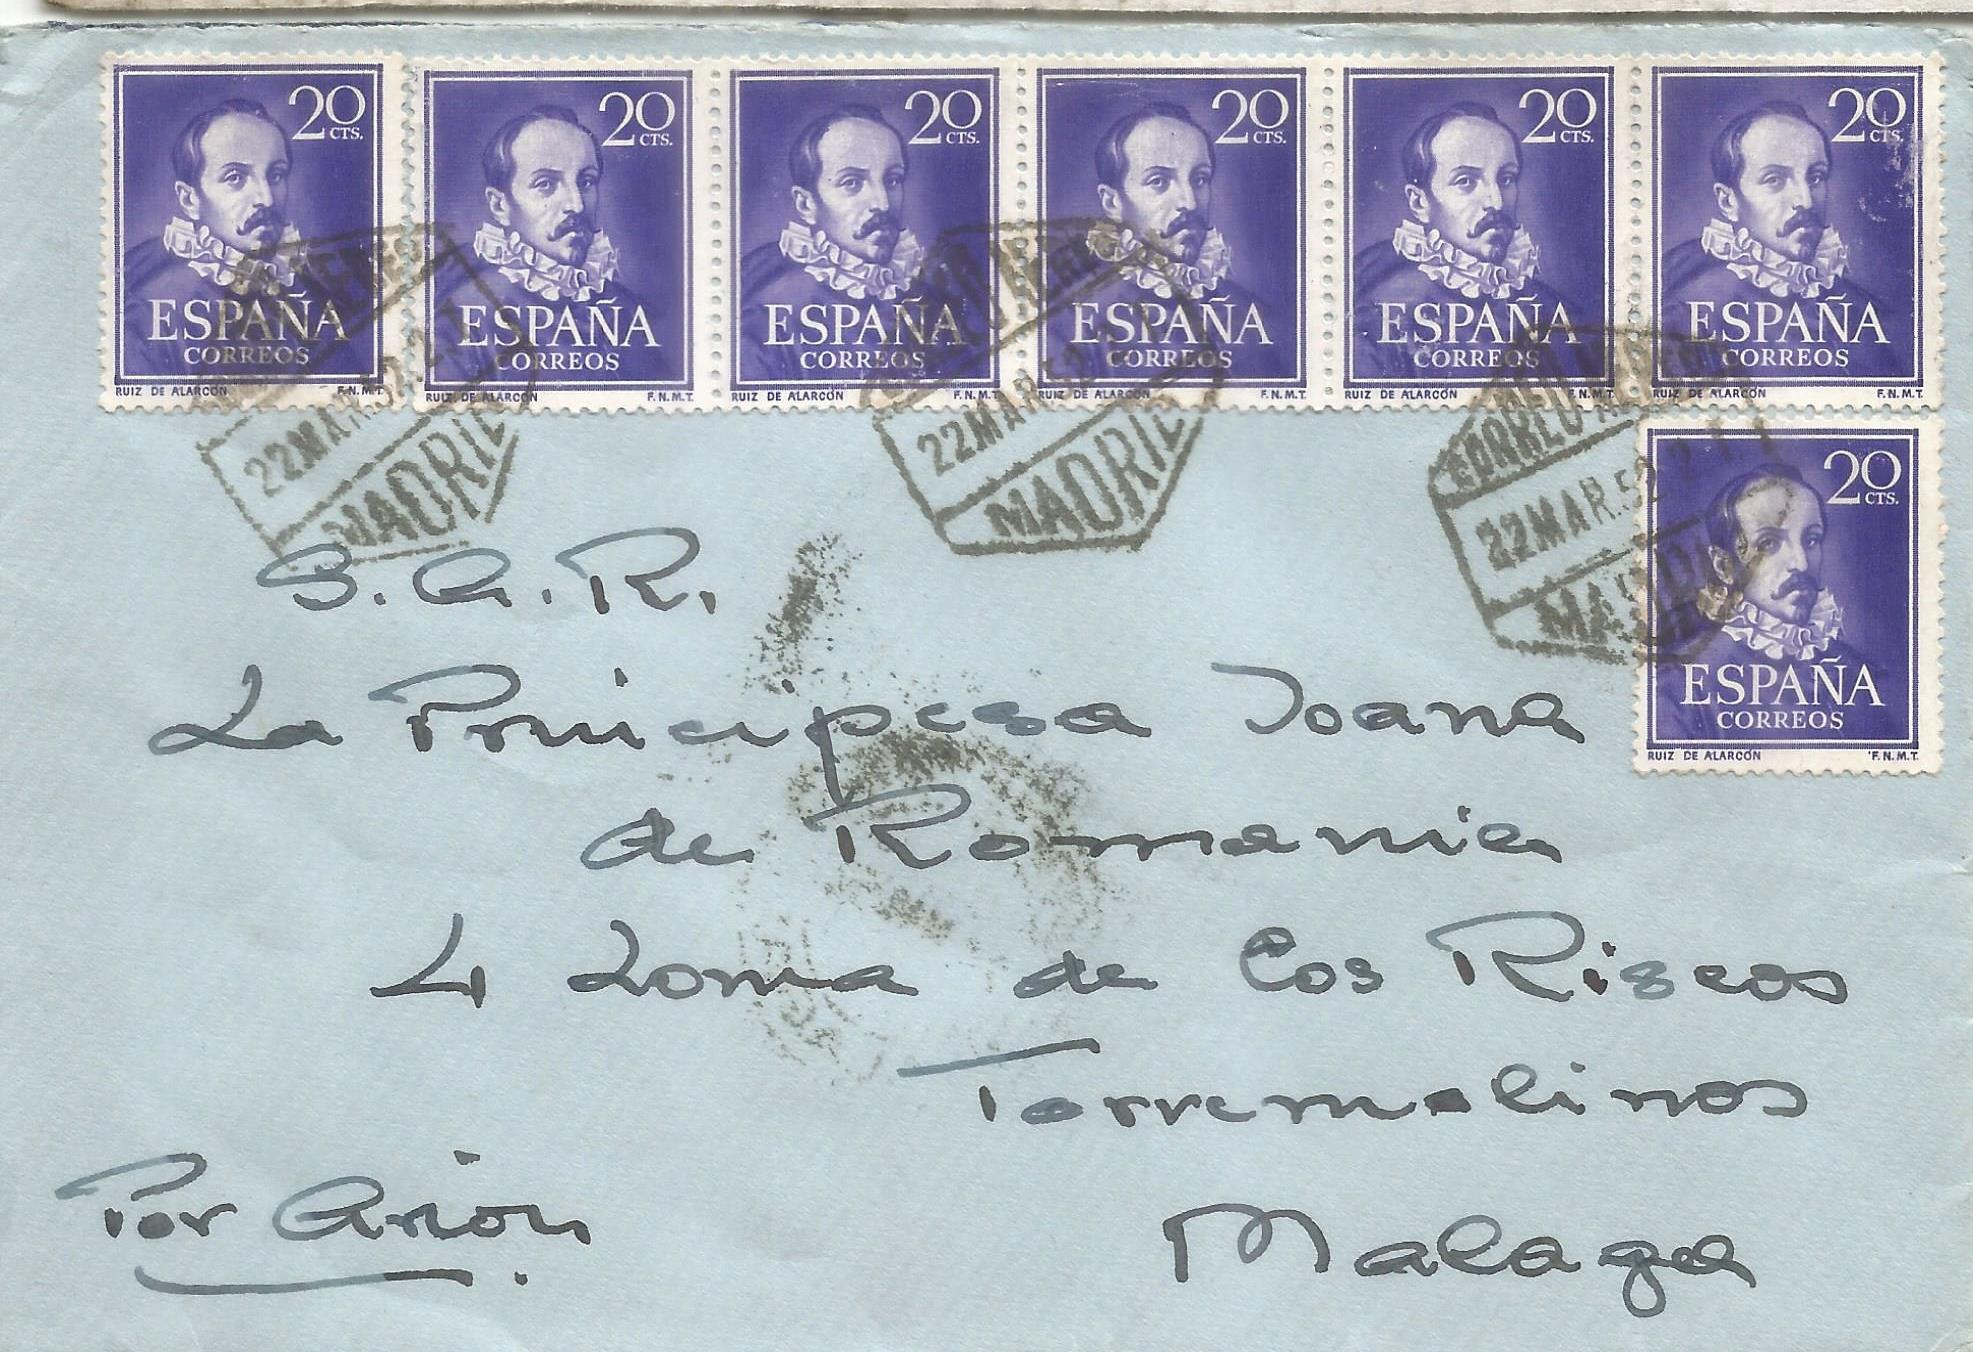 20 20 20 20 20 20
CTS. CTS. CTS. CTS. CTS. CTS.
ESPAÑA ESPAÑA ESPAÑA ESPAÑA ESPAÑA ESPAÑA
CORREOS CORREOS CORREOS CORREOS CORREOS CORREOS
RUIZ DE ALARCÓN F.N.M.T. RUIZ DE ALARCÓN F.N.M.T. RUIZ DE ALARCÓN F.N.M.T. RUIZ DE ALARCÓN F.N.M.T. RUIZ DE ALARCÓN F.N.M.T. RUIZ DE ALARCÓN F.N.M.T.
22MAR.
MADRID
CORREO AEREO
22MAR.52
MADRID
CORREO AEREO
22MAR.52
MADRID
20
CTS.
ESPAÑA
CORREOS
RUIZ DE ALARCÓN F.N.M.T.
S.A.R.
La Principesa Ioana
de Romania
4 Loma de los Riscos
Torremolinos
Por Avion
Malaga